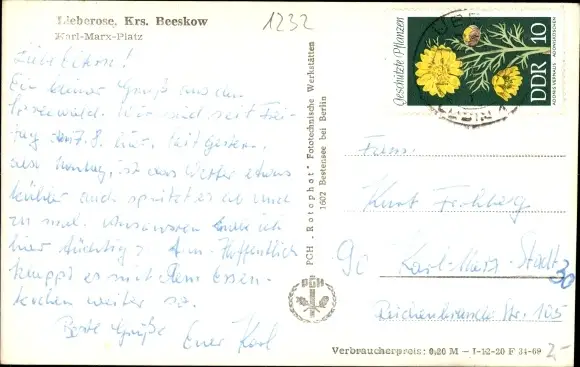 Lieberose, Krs. Beeskow
Karl-Marx-Platz
1232
Liebe Eltern!
Ein kleiner Gruß aus dem
Spreewald. Wir sind seit Frei-
tag 7.8. hier. Seit gestern,
also Montag, ist das Wetter etwas
kühler auch spritzt es ab und
zu mal. ich
hier tüchtig Hoffentlich
klappt es mit dem Essen-
kochen weiter so.
Beste Grüße Euer Karl
PGH „Rotophot" Fototechnische Werkstätten
1602 Bestensee bei Berlin
PGH
Geschützte Pflanzen
DDR 10
ADONIS VERNALIS ADONISRÖSCHEN
Fam.
Kurt Frohberg
90 Karl-Marx-Stadt
30
Reichenbrander Str. 105
Verbraucherpreis: 0,20 M – I-12-20 F 34-69
2,-